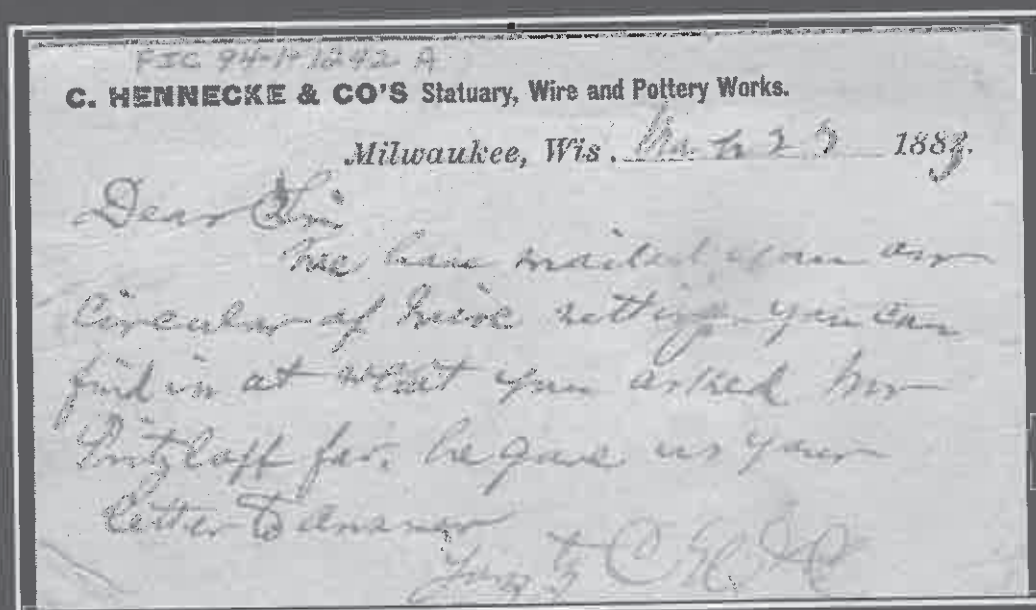 FIC 94-H 1242 A
C. HENNECKE & CO'S Statuary, Wire and Pottery Works.
Milwaukee, Wis. 1883.
Dear Sir
We have mailed you our
Circular of wire netting you can
find in at what you asked Mr
Pritzlaff for, he gave us your
letter to answer
Yours C H & C